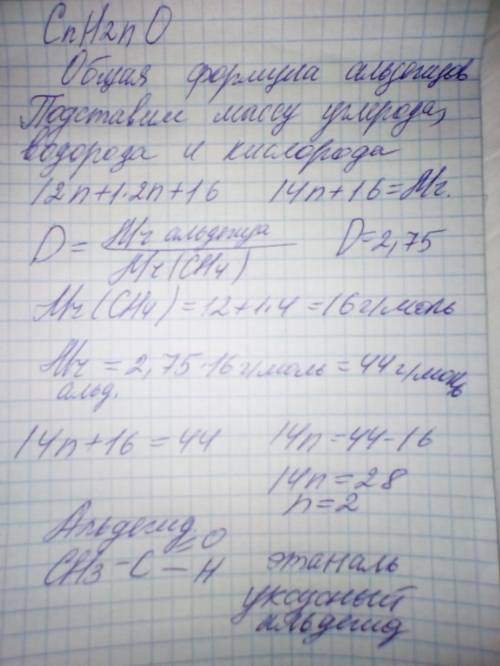 CnH2nO
Общая формула альдегидов
Подставим массу углерода,
водорода и кислорода
12n+1·2n+16 14n+16=Mr.
D = Mr альдегида / Mr(CH4) D=2,75
Mr(CH4)=12+1·4=16г/моль
Mr альд. = 2,75·16г/моль=44г/моль
14n+16=44 14n=44-16
14n=28
n=2
Альдегид
=O
CH3-C-H этаналь
уксусный
альдегид